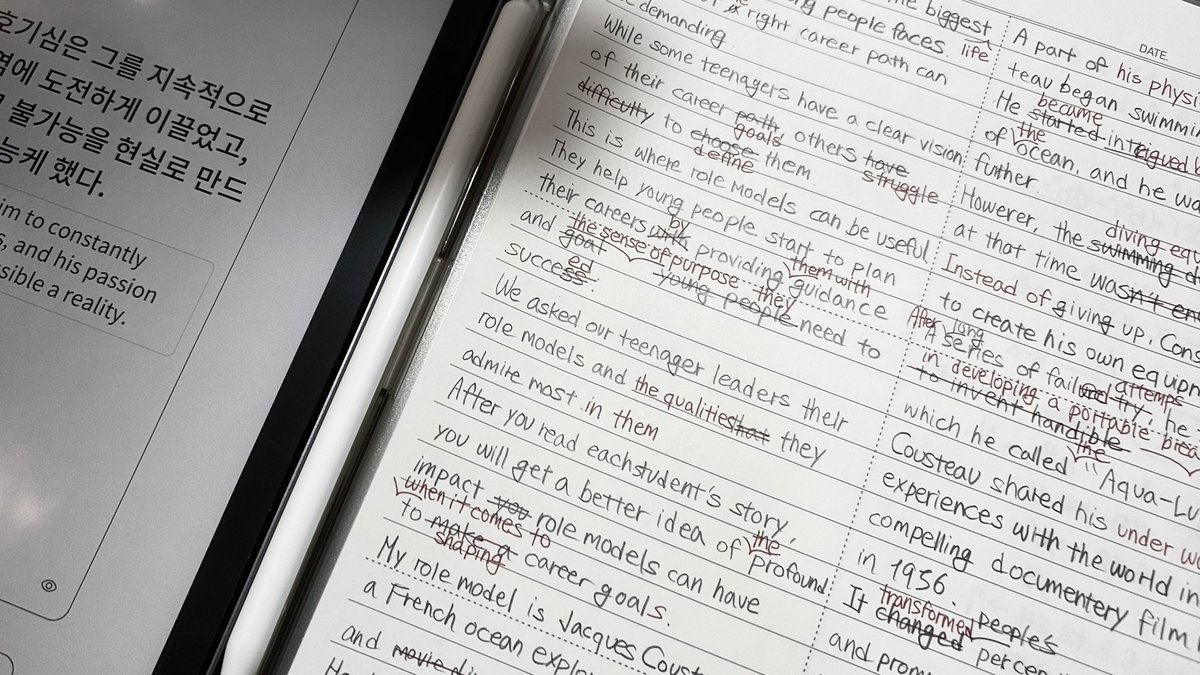 호기심은 그를 지속적으로
도전하게 이끌었고,
불가능을 현실로 만드
능케 했다.
im to constantly
, and his passion
ssible a reality.
the biggest
young people faces. life
a right career path can
demanding.
While some teenagers have a clear vision
of their career path, others have
goals struggle
difficulty to choose them.
define
This is where role models can be useful
They help young people start to plan
by
their careers with providing guidance
the sense of purpose them with
and goal young people need to
they
success
ed
We asked our teenager leaders their
role models and the qualities that they
admire most in them
After you read each student's story,
you will get a better idea of profound
the
impact you role models can have
when it comes to
to make a career goals.
shaping
My role model is Jacques Coust
a French ocean explo
and movie di
DATE.
A part of his physi
teau began swimm
became
He started intrigued
the
of ocean, and he wa
further.
However, the swimming d
diving equ
at that time wasn't en
Instead of giving up, Cous
to create his own equipm
After long
A series of failed try, he
attemps
in developing a portable brea
to invent handible
which he called "Aqua-Lu
the
Cousteau shared his under wa
experiences with the world in
compelling documentary film
in 1956.
It changed peoples
transformed
and prom percep